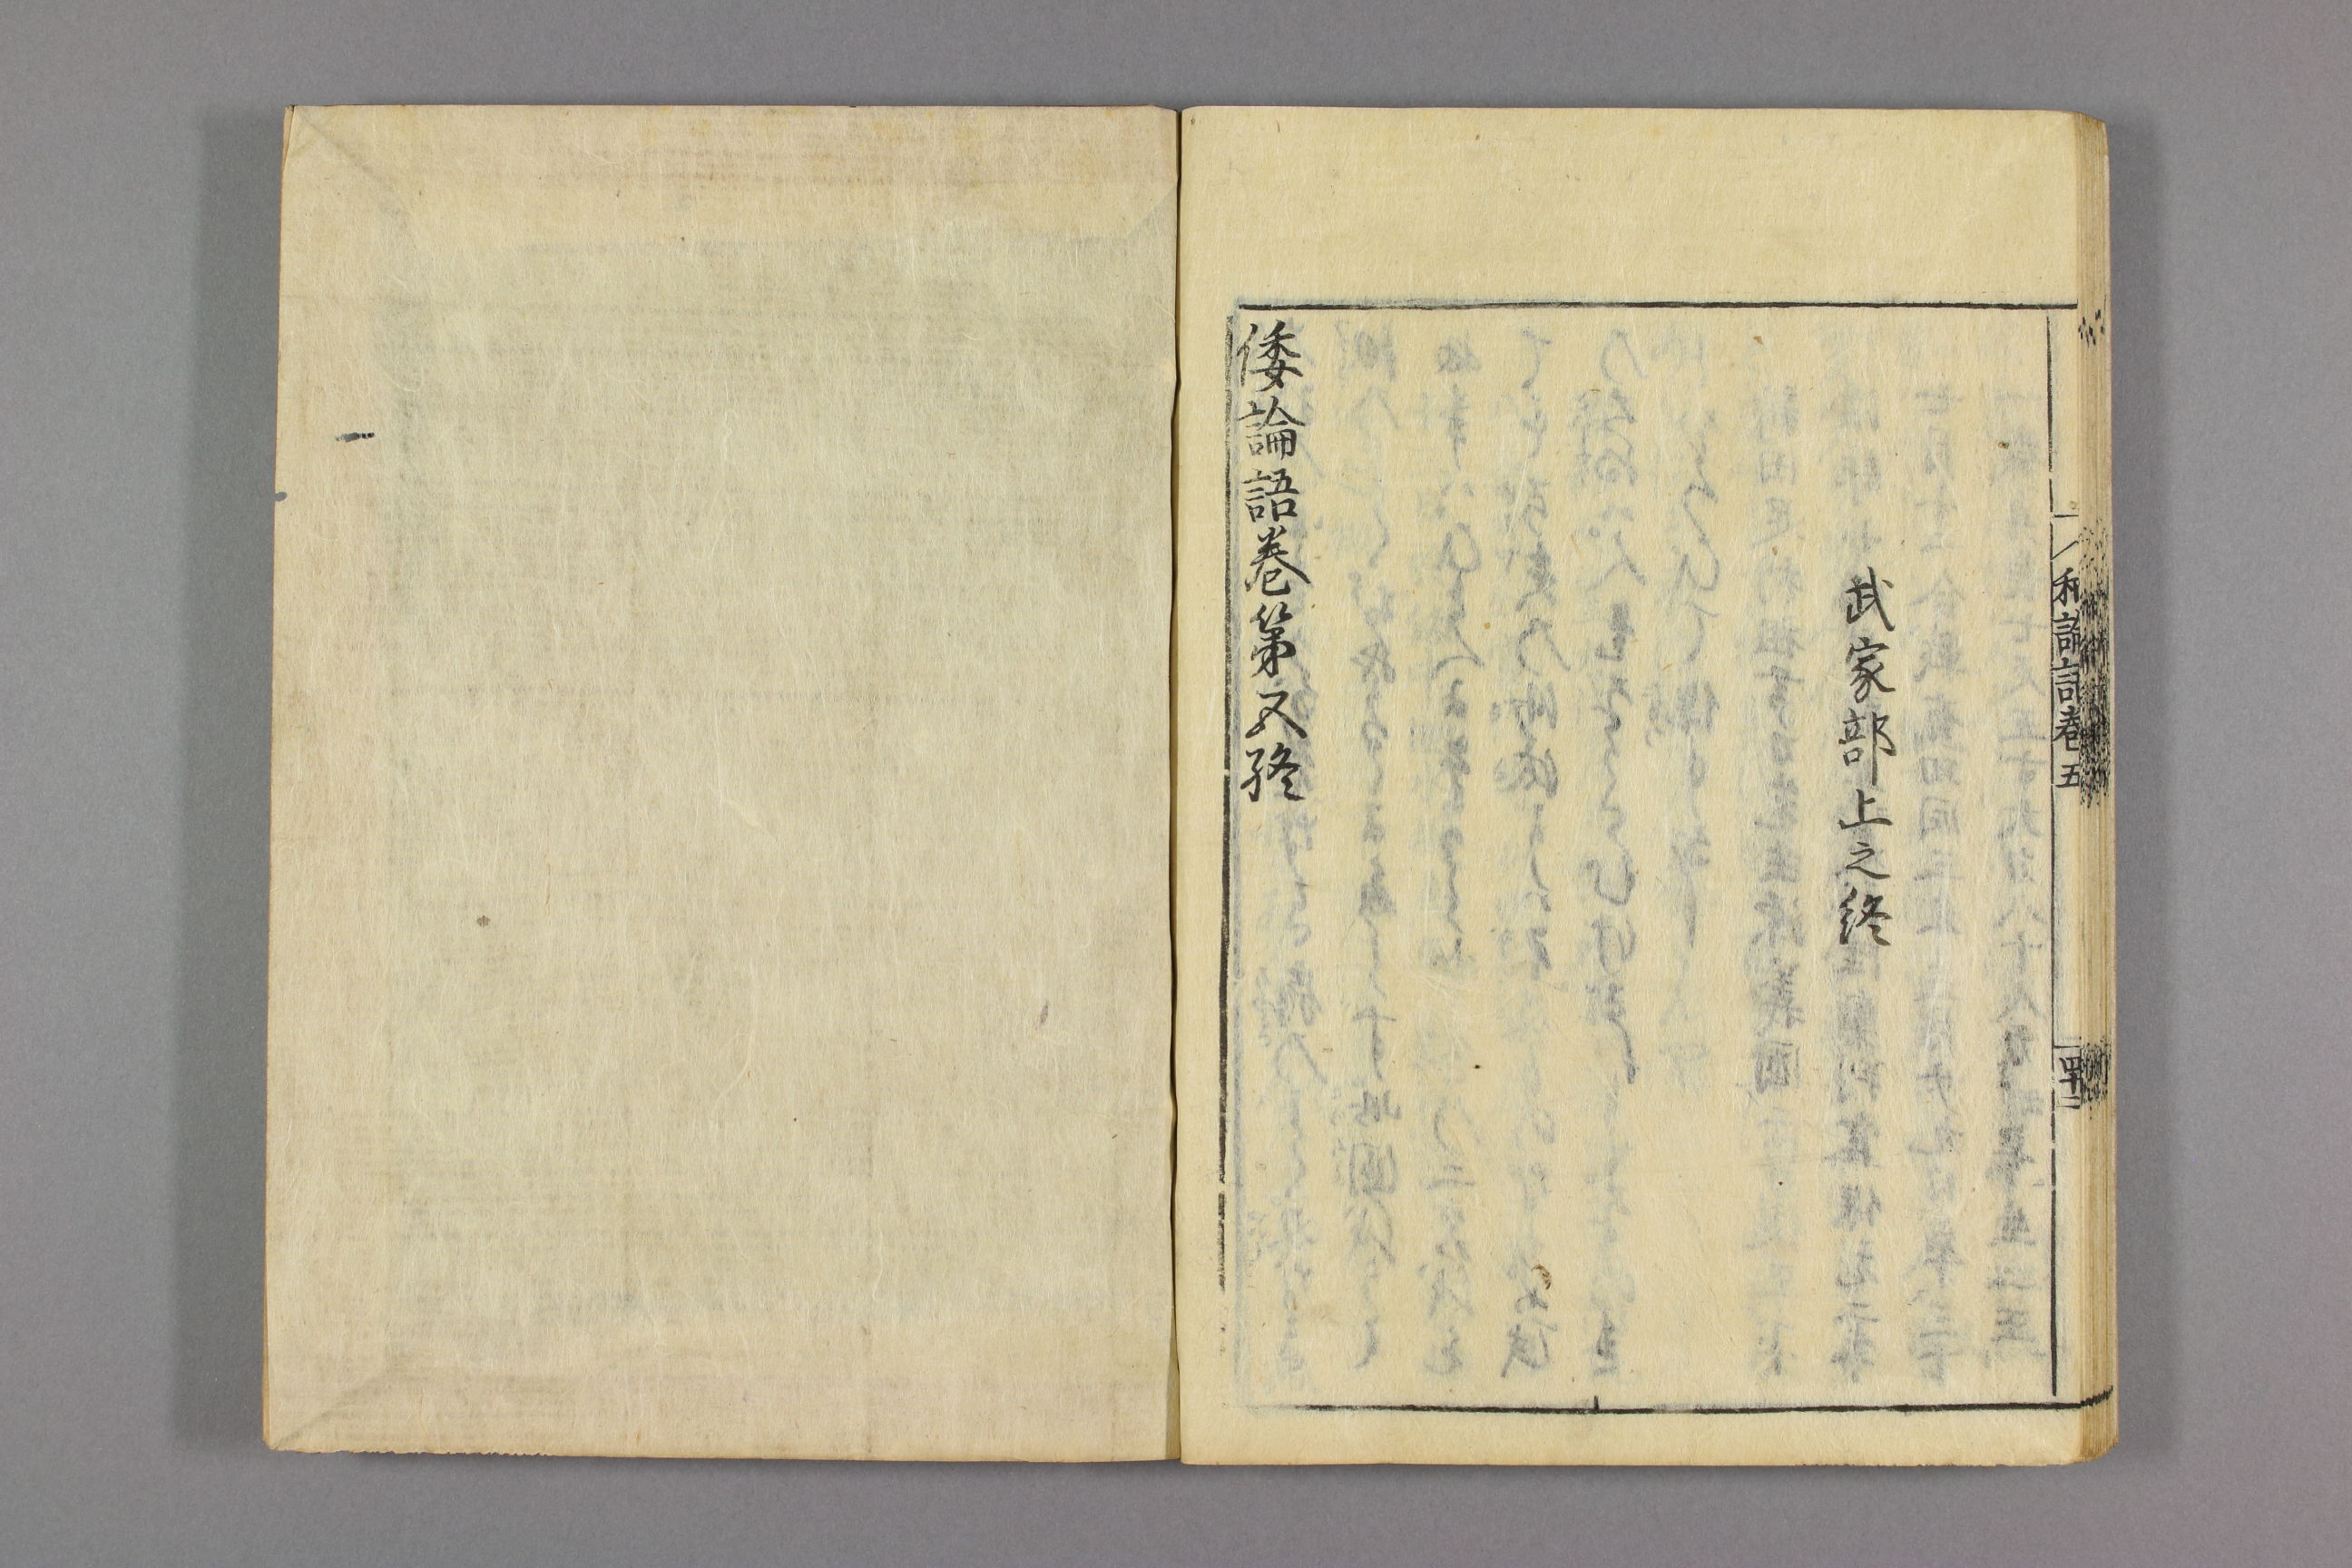 武家部上之終
倭論語卷第五終
和論語卷五
四十二